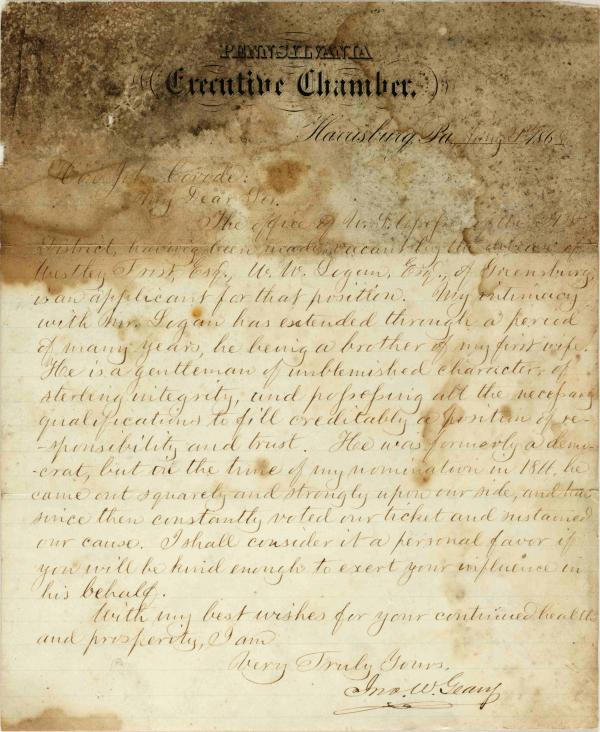 PENNSYLVANIA
Executive Chamber.
Harrisburg, Pa. 186
Covode:
My Dear Sir.
The office of U. S. in the
District, having been made vacant by the of
Westley Frost, Esq., W. W. Logan, Esq., of Greensburg,
is an applicant for that position. My intimacy
with Mr. Logan has extended through a period
of many years, he being a brother of my first wife.
He is a gentleman of unblemished character, of
sterling integrity, and possessing all the necessary
qualifications to fill creditably a position of re-
-sponsibility and trust. He was formerly a demo-
-crat, but on the time of my nomination in 1866, he
came out squarely and strongly upon our side, and has
since then constantly voted our ticket and sustained
our cause. I shall consider it a personal favor if
you will be kind enough to exert your influence in
his behalf.
With my best wishes for your continued health
and prosperity, I am
Very Truly Yours,
Jno. W. Geary